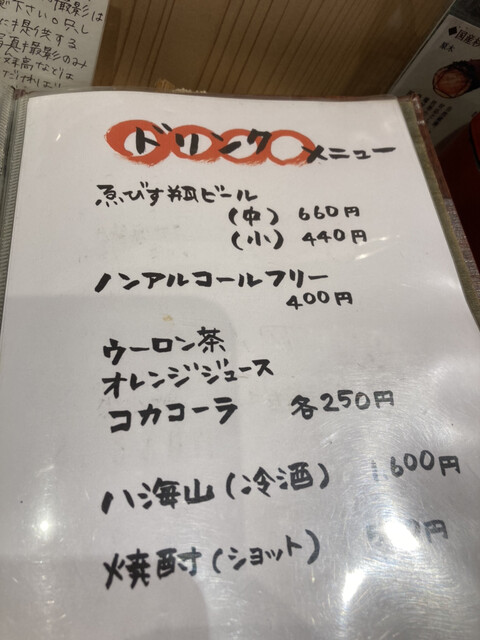 ドリンクメニュー
ゑびす瓶ビール
(中) 660円
(小) 440円
ノンアルコールフリー
400円
ウーロン茶
オレンジジュース
コカコーラ 各250円
八海山(冷酒) 1,600円
焼酎(ショット) 円